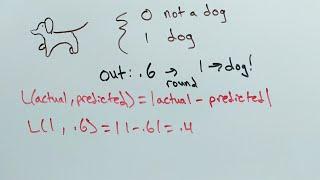 0 not a dog
1 dog
out: .6 → 1 → dog!
round
L(actual, predicted) = |actual - predicted|
L(1, .6) = |1-.6| = .4